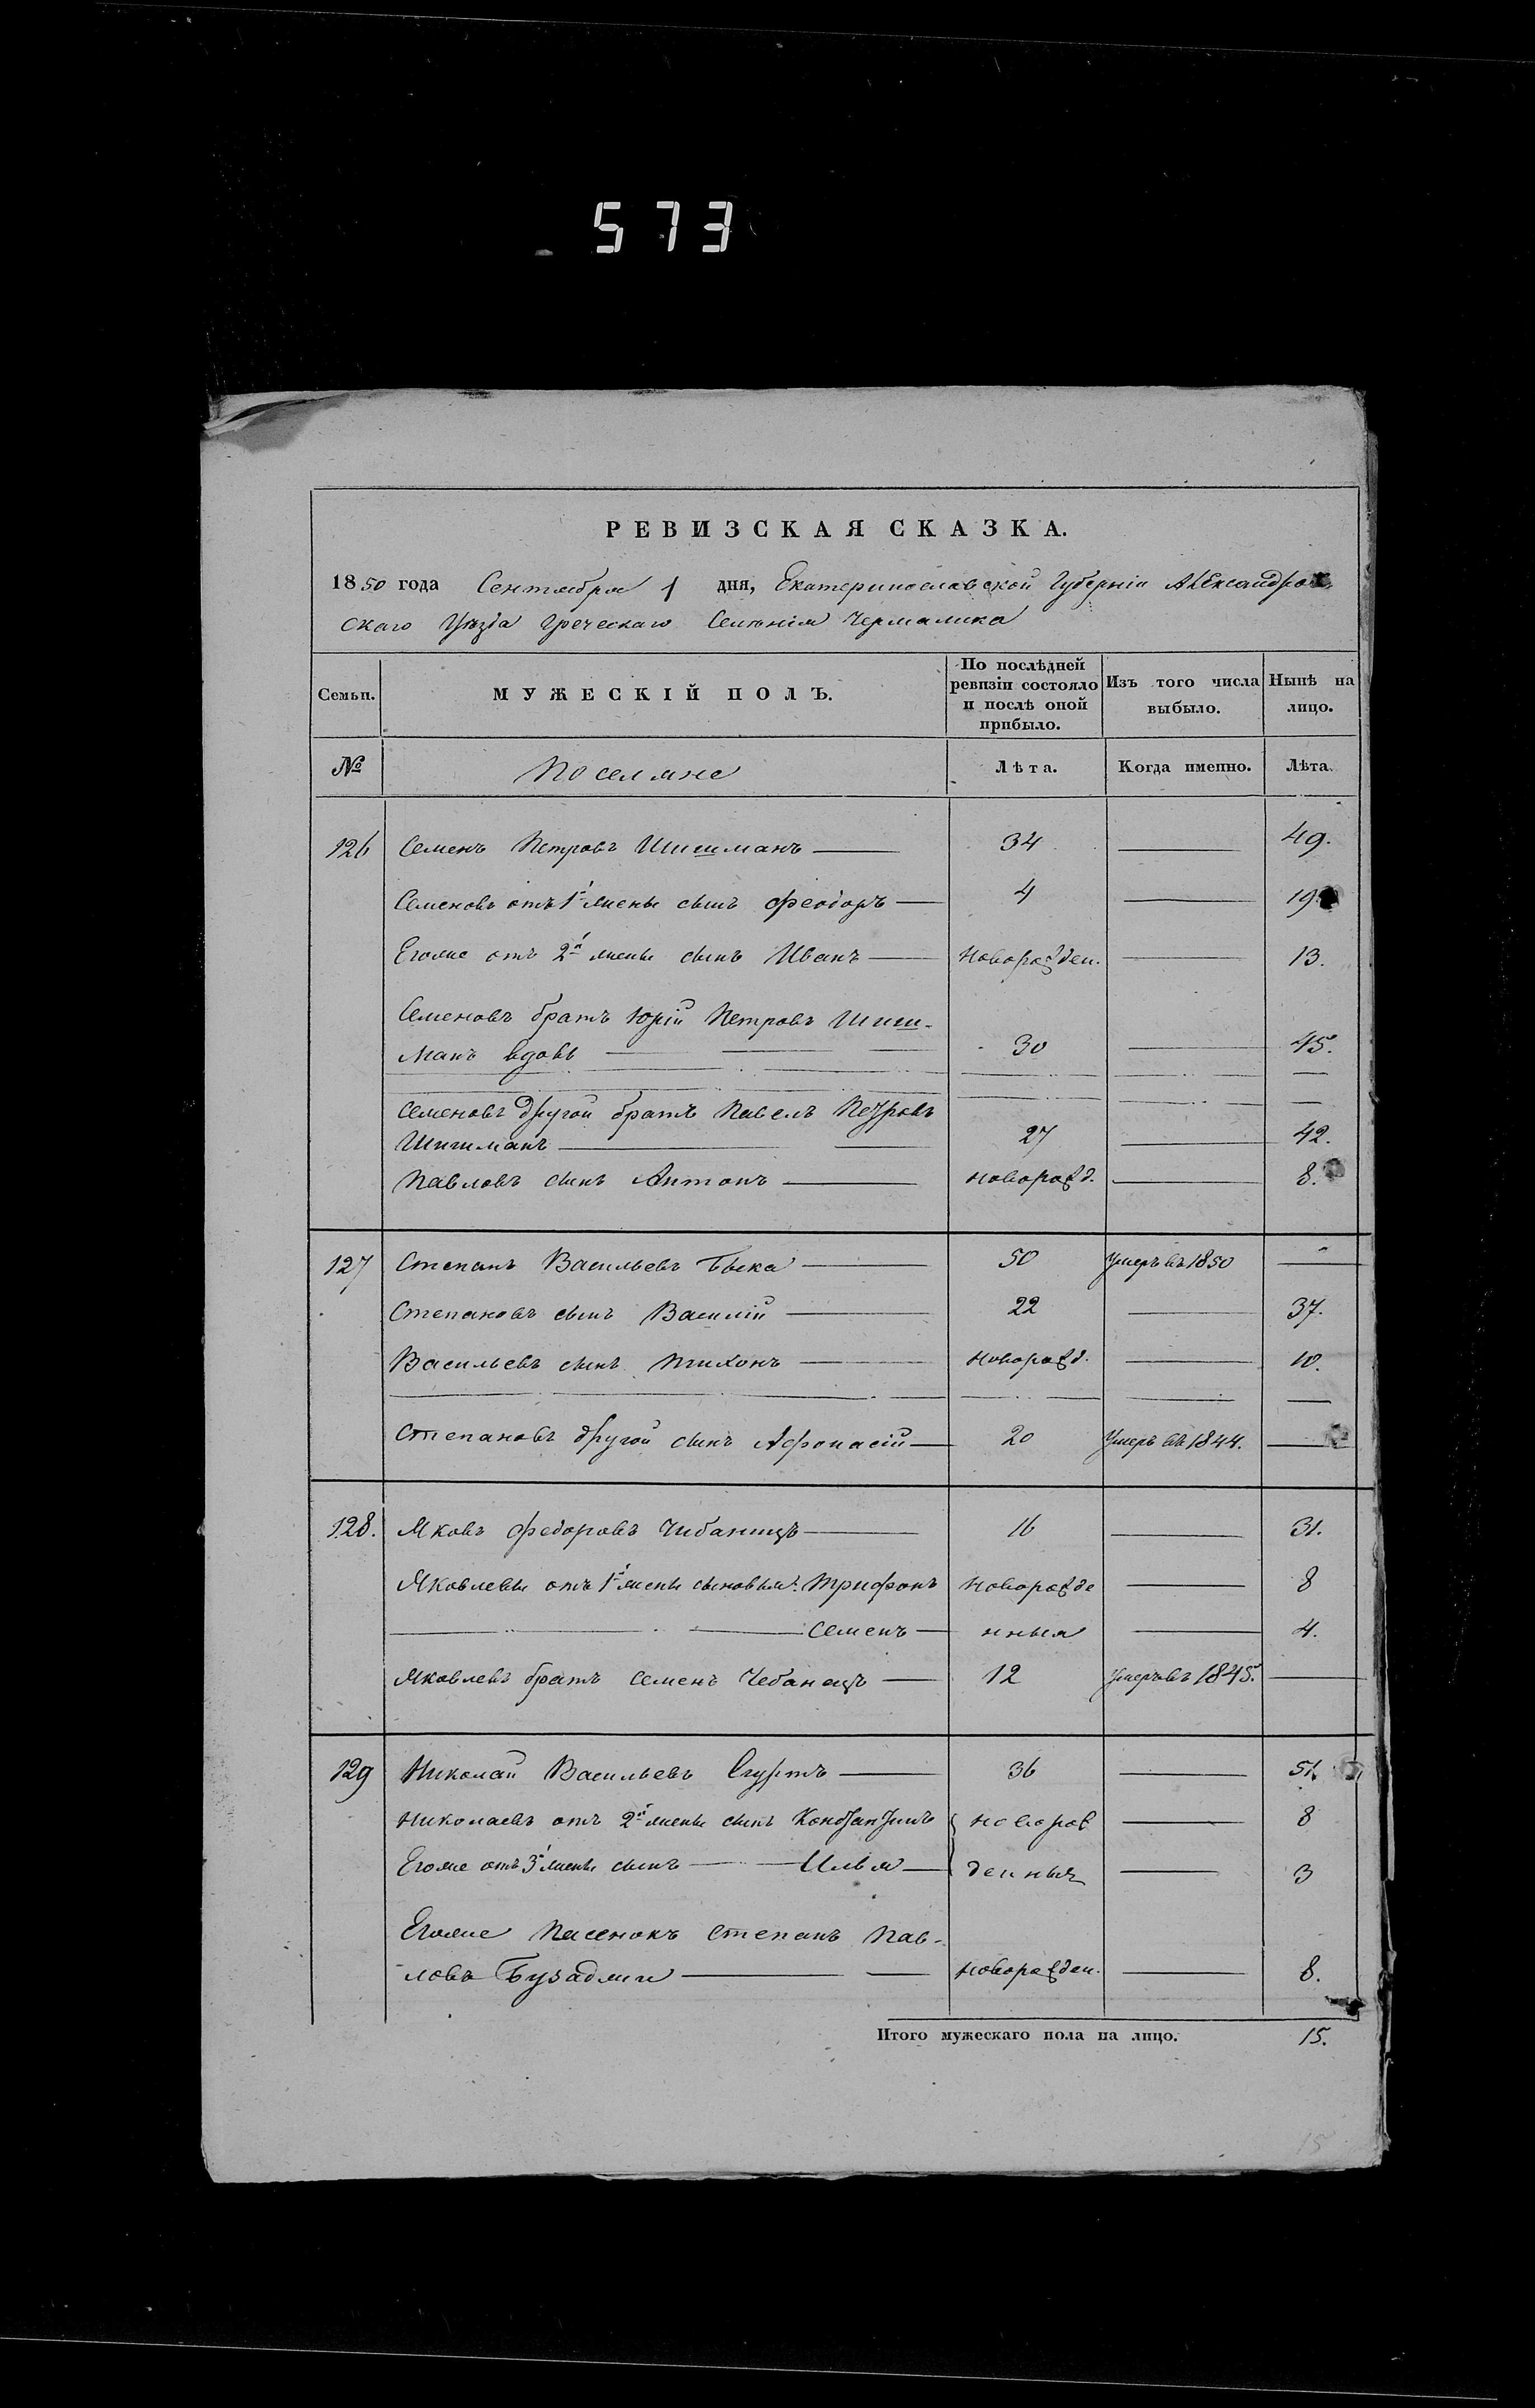 573
РЕВИЗСКАЯ СКАЗКА.
1850 года Сентября 1 дня, Екатеринославской Губерніи Александров-
скаго Уѣзда Греческаго Селенія Чермалика
Семьи. МУЖЕСКІЙ ПОЛЪ. По послѣдней ревизіи состояло и послѣ оной прибыло. Изъ того числа выбыло. Нынѣ на лицо.
№ Поселяне Лѣта. Когда именно. Лѣта.
126 Семенъ Петровъ Шишманъ 34 49.
Семеновъ отъ 1й жены сынъ Феодоръ 4 19
Егоже отъ 2й жены сынъ Иванъ новорожден. 13.
Семеновъ братъ Юрій Петровъ Шиш-
манъ вдовъ 30 45.
Семеновъ другой братъ Павелъ Петровъ
Шишманъ 27 42.
Павловъ сынъ Антонъ новорожд. 8.
127 Степанъ Васильевъ 50 Умеръ въ 1850
Степановъ сынъ Василій 22 37.
Васильевъ сынъ новорожд. 10.
Степановъ другой сынъ Афонасій 20 Умеръ въ 1844.
128. Яковъ Федоровъ Чибанецъ 16 31.
Яковлевы отъ 1й жены сыновья: Трифонъ новорожде 8
Семенъ нныя 4.
Яковлевъ братъ Семенъ Чебанецъ 12 Умеръ въ 1845.
129 Николай Васильевъ 36 51.
Николаевъ отъ 2й жены сынъ Константинъ новорож 8
Егоже отъ 3й жены сынъ Илья денныя 3
Егоже Пасенокъ Степанъ Пав-
ловъ Бузаджи новорожден. 8.
Итого мужескаго пола на лицо. 15.
15